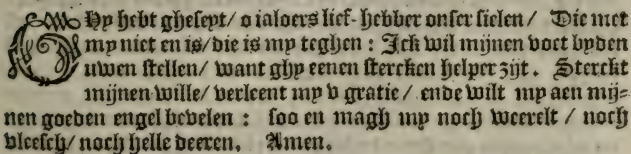 GHy hebt gheseyt/ o ialoers lief-hebber onser sielen/ Die met
my niet en is/ die is my teghen : Ick wil mijnen voet by den
uwen stellen/ want ghy eenen stercken helper zijt. Sterckt
mijnen wille/ verleent my v gratie/ ende wilt my aen mij-
nen goeden engel bevelen : soo en magh my noch weerelt / noch
vleesch/ noch helle deeren. Amen.